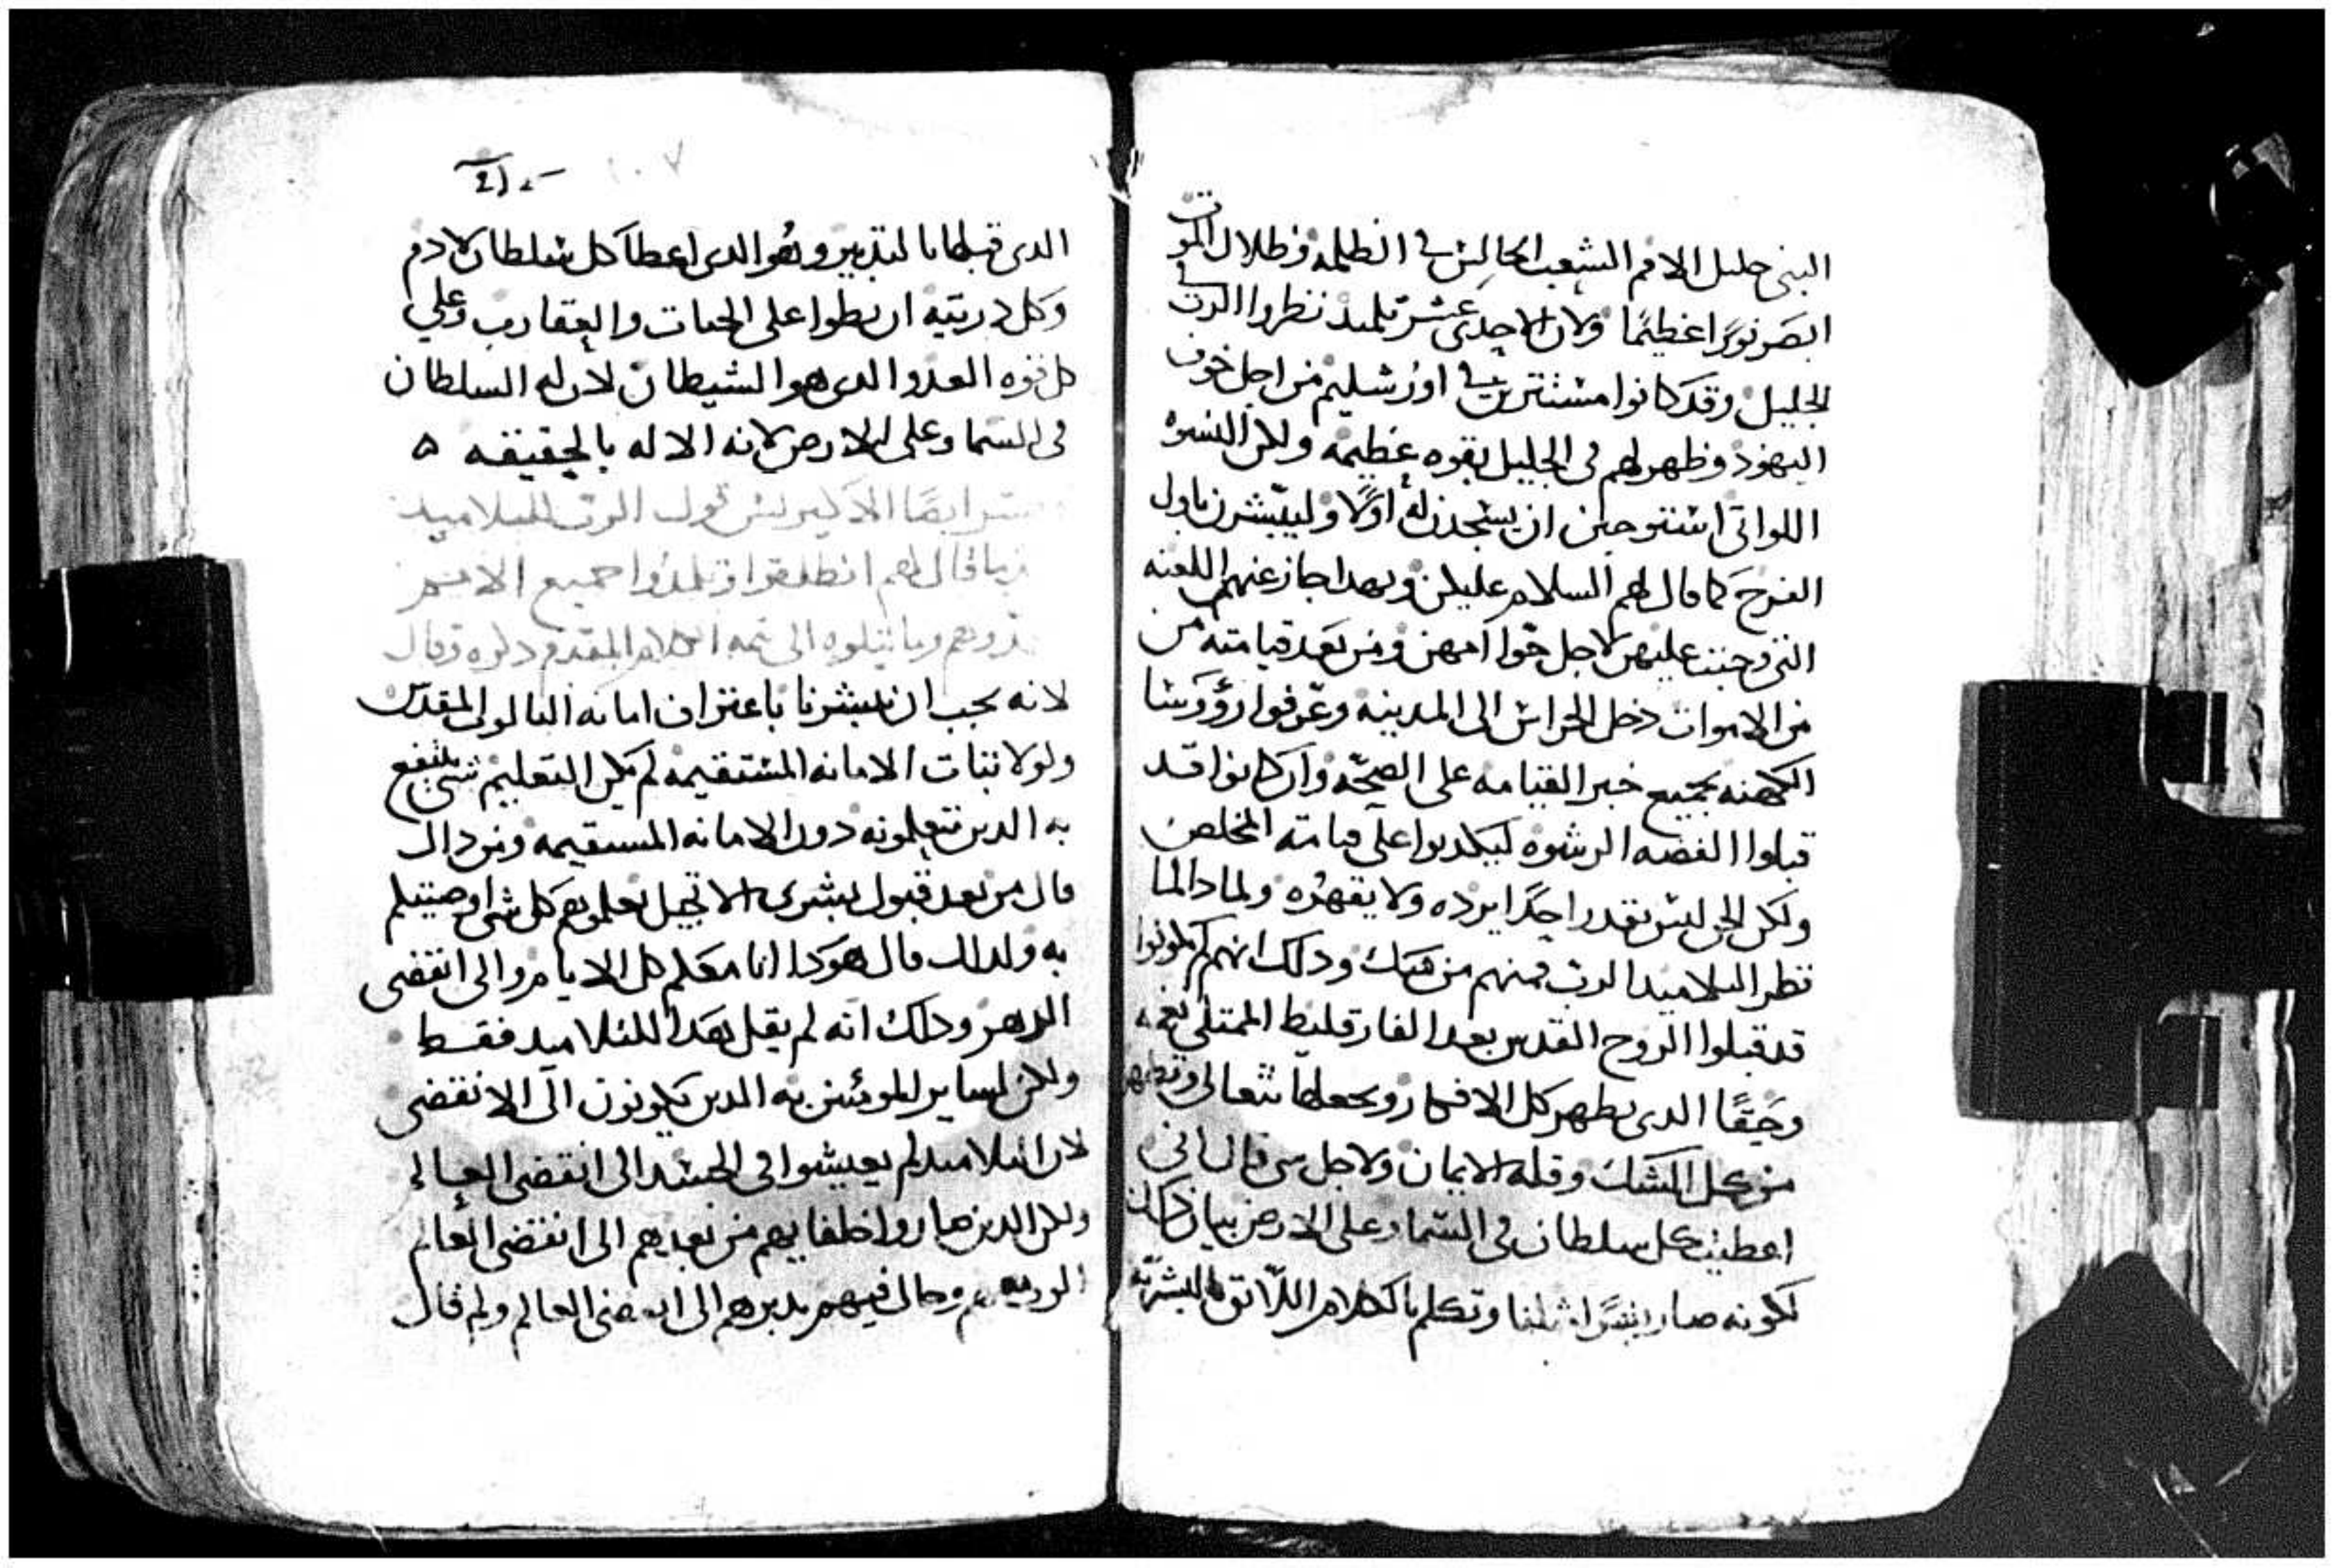 النبى جليل الامم الشعب الجالس فى الظلمه وظلال الموت
ابصر نورًا عظيمًا ولان الاحدى عشر تلميذ نظروا الرب فى
الجليل وقد كانوا مستترين فى اورشليم من اجل خوف
اليهود وظهر لهم فى الجليل بقوه عظيمه ولكن النسوه
اللواتى استوجبن ان يسجدن له اولًا وليبشرن باول
الفرح كما قال لهم السلام عليكن وبهدا جاز عنهم اللعنه
التى وجبت عليهن لاجل حوا امهن ومن بعد قيامته من
من الاموات دخل الحراس الى المدينه وعرفوا رؤوسا
الكهنه بجميع خبر القيامه على الصحه وان كانوا قد
قبلوا الفضه الرشوه ليكدبوا على قيامته المخلص
ولكن الحق ليس يقدر احدًا يرده ولا يقهره ولمادا لما
نظر التلاميد الرب فمنهم من شك ودلك انهم لم يكونوا
قد قبلوا الروح القدس بعد الفارقليط الممتلى نعمه
وحقًا الدى يطهر كل الافكار ويجعلها تتعالى وتطهر
من كل الشك وقله الايمان ولاجل شى قال انى
اعطيت كل سلطان فى السما وعلى الارض بيان دلك
لكونه صار بشرًا مثلنا وتكلم بالكلام اللائق بالبشريه
١٠٧
الدى قبلها بالتدبير وهو الدى اعطا كل سلطان لادم
وكل دريته ان يطوا على الحيات والعقارب وعلى
كل قوه العدو الدى هو الشيطان لان له السلطان
فى السما وعلى الارض لانه الاله بالحقيقه ه
ايضًا قول الرب للتلاميد
قال لهم انطلقوا وتلمدوا جميع الامم
وما يتلوه الى تمه الكلام المقدم دكره وقال
لانه يجب ان تبشرنا باعتراف امانه الثالوث المقدس
ولولا ثبات الامانه المستقيمه لم يكن التعليم شى ينتفع
به الدين يتعلمونه دون الامانه المستقيمه ومن دالك
قال من بعد قبول بشرى الانجيل تعلموهم كل شى اوصيتكم
به ولدلك قال هودا انا معكم كل الايام والى انقضى
الدهر ودلك انه لم يقل هدا للتلاميد فقط
ولكن لساير المومنين به الدين يكونون الى الانقضى
لان التلاميد لم يعيشوا فى الجسد الى انقضى العالم
ولكن الدين صاروا خلفايهم من بعدهم الى انقضى العالم
الرب وحال فيهم يدبرهم الى انقضى العالم ولم قال